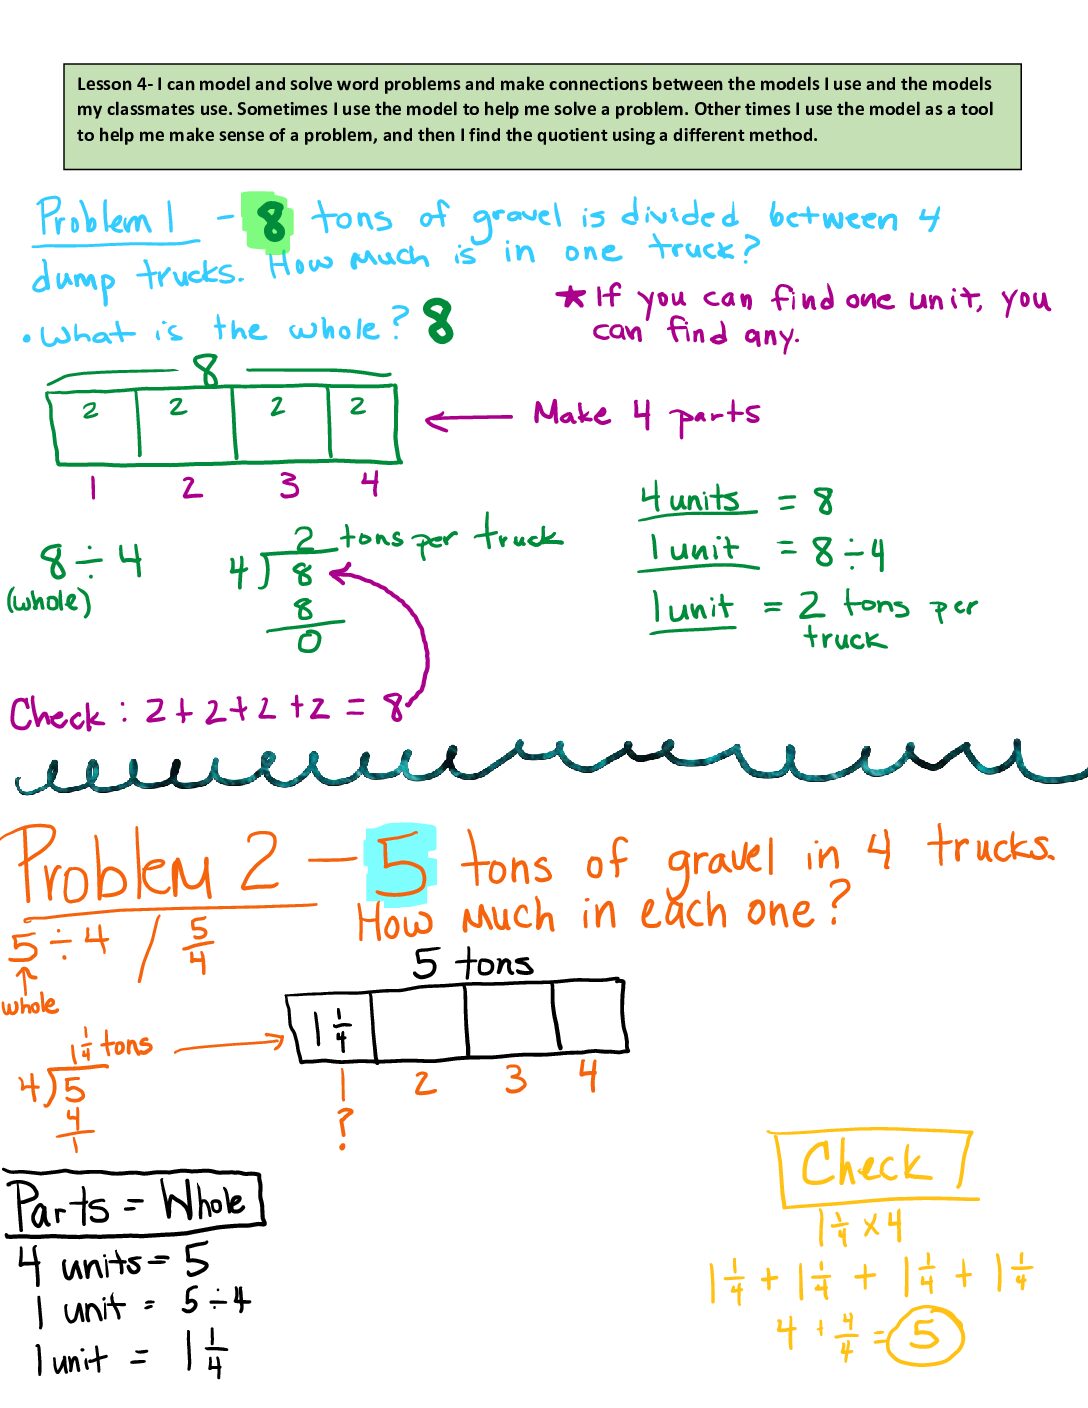 Lesson 4- I can model and solve word problems and make connections between the models I use and the models
my classmates use. Sometimes I use the model to help me solve a problem. Other times I use the model as a tool
to help me make sense of a problem, and then I find the quotient using a different method.
Problem 1 - 8 tons of gravel is divided between 4
dump trucks. How much is in one truck?
• What is the whole? 8
★ If you can find one unit, you
can find any.
8
2 2 2 2
← Make 4 parts
1 2 3 4
8 ÷ 4
(whole)
2 tons per truck
4 ) 8
8
0
4 units = 8
1 unit = 8 ÷ 4
1 unit = 2 tons per
truck
Check : 2 + 2 + 2 + 2 = 8
Problem 2 - 5 tons of gravel in 4 trucks.
How much in each one?
5 ÷ 4 / 5/4
whole
5 tons
1 1/4
1 2 3 4
?
1 1/4 tons
4 ) 5
4
1
Parts = Whole
4 units = 5
1 unit = 5 ÷ 4
1 unit = 1 1/4
Check
1 1/4 x 4
1 1/4 + 1 1/4 + 1 1/4 + 1 1/4
4 + 4/4 = 5